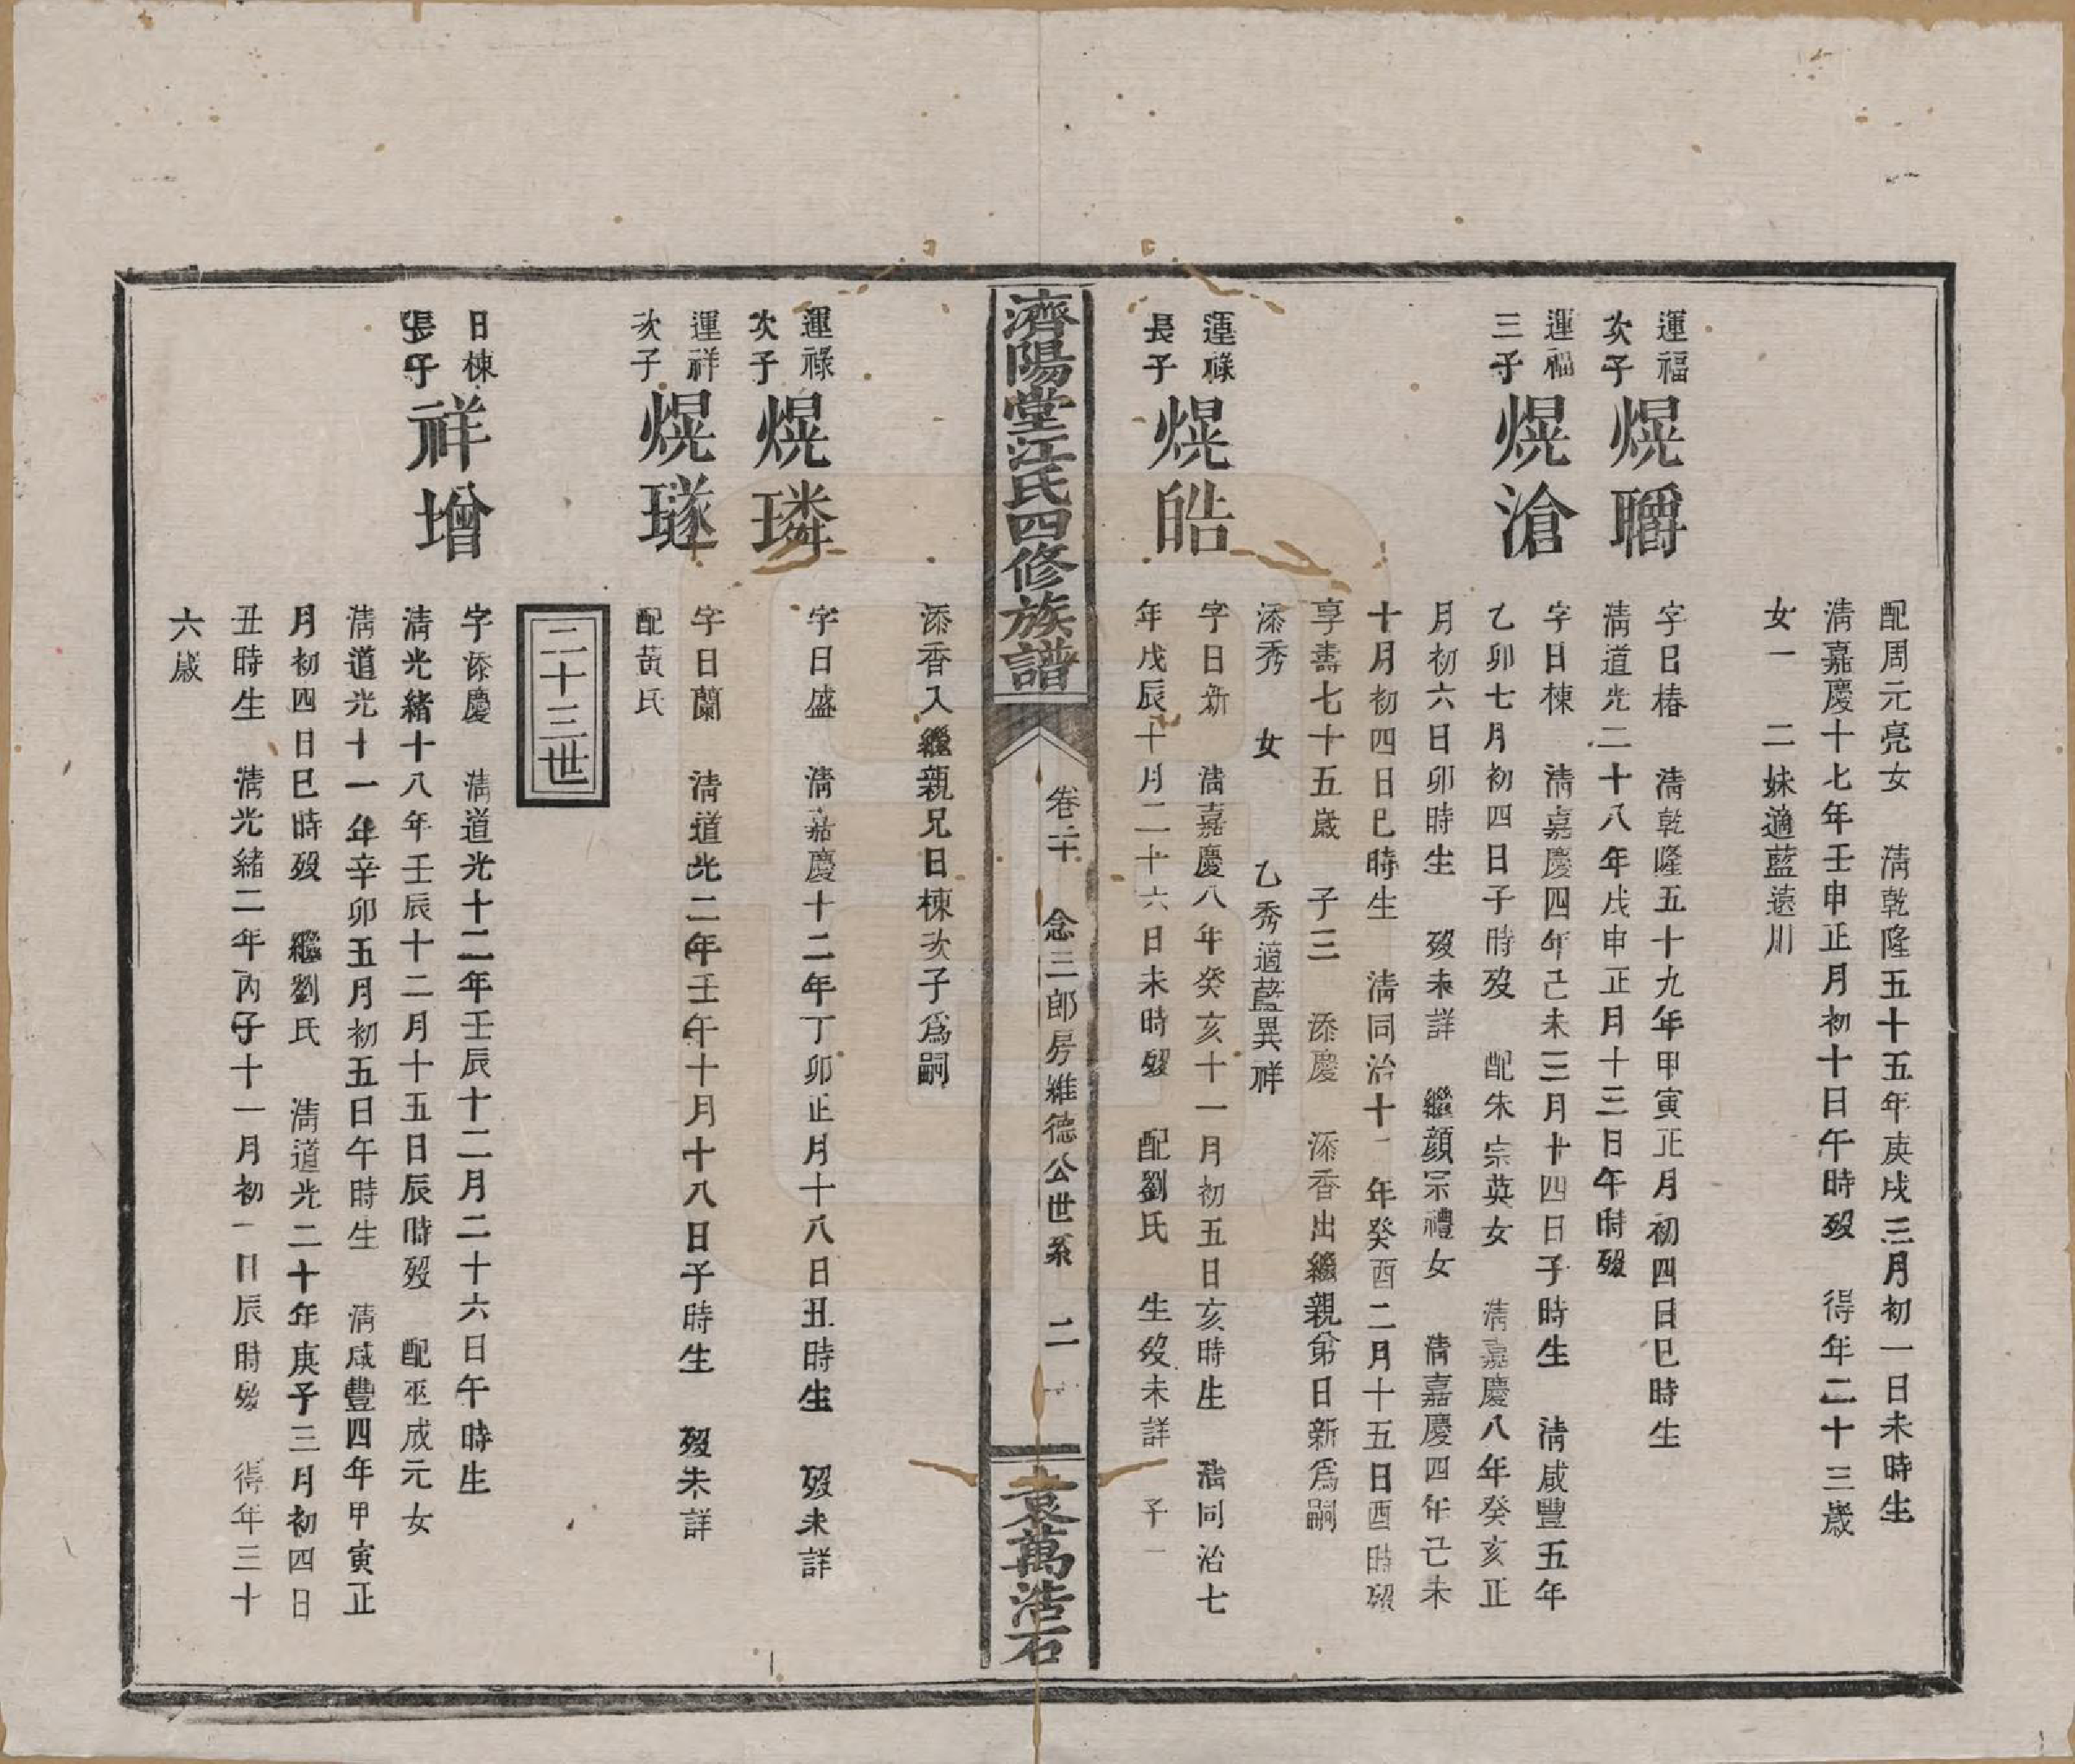 配周元亮女　清乾隆五十五年庚戌三月初一日未時生
清嘉慶十七年壬申正月初十日午時歿　得年二十三歲
女一　二妹適藍遠川
運福
次子
熀𤔡
字日椿　清乾隆五十九年甲寅正月初四日巳時生
清道光二十八年戊申正月十三日午時歿
運福
三子
熀滄
字日棟　清嘉慶四年己未三月十四日子時生　清咸豐五年
乙卯七月初四日子時歿　配朱宗英女　清嘉慶八年癸亥正
月初六日卯時生　歿未詳　繼顔宗禮女　清嘉慶四年己未
十月初四日巳時生　清同治十一年癸酉二月十五日酉時歿
享壽七十五歲　子三　添慶　添香出繼親弟日新爲嗣
添秀　女　乙秀適藍異祥
運祿
長子
熀皓
字日新　清嘉慶八年癸亥十一月初五日亥時生　清同治七
年戊辰十月二十六日未時歿　配劉氏　生歿未詳　子一
濟陽堂江氏四修族譜
卷二十　念三郎房維德公世系　二
袁萬浩石
添香入繼親兄日棟次子爲嗣
運祿
次子
熀璘
字日盛　清嘉慶十二年丁卯正月十八日丑時生　歿未詳
運祥
次子
熀璲
字日蘭　清道光二年壬午十月十八日子時生　歿未詳
配黃氏
二十三世
日棟
長子
祥增
字添慶　清道光十二年壬辰十二月二十六日午時生
清光緒十八年壬辰十二月十五日辰時歿　配巫成元女
清道光十一年辛卯五月初五日午時生　清咸豐四年甲寅正
月初四日巳時歿　繼劉氏　清道光二十年庚子三月初四日
丑時生　清光緒二年丙子十一月初一日辰時歿　得年三十
六歲